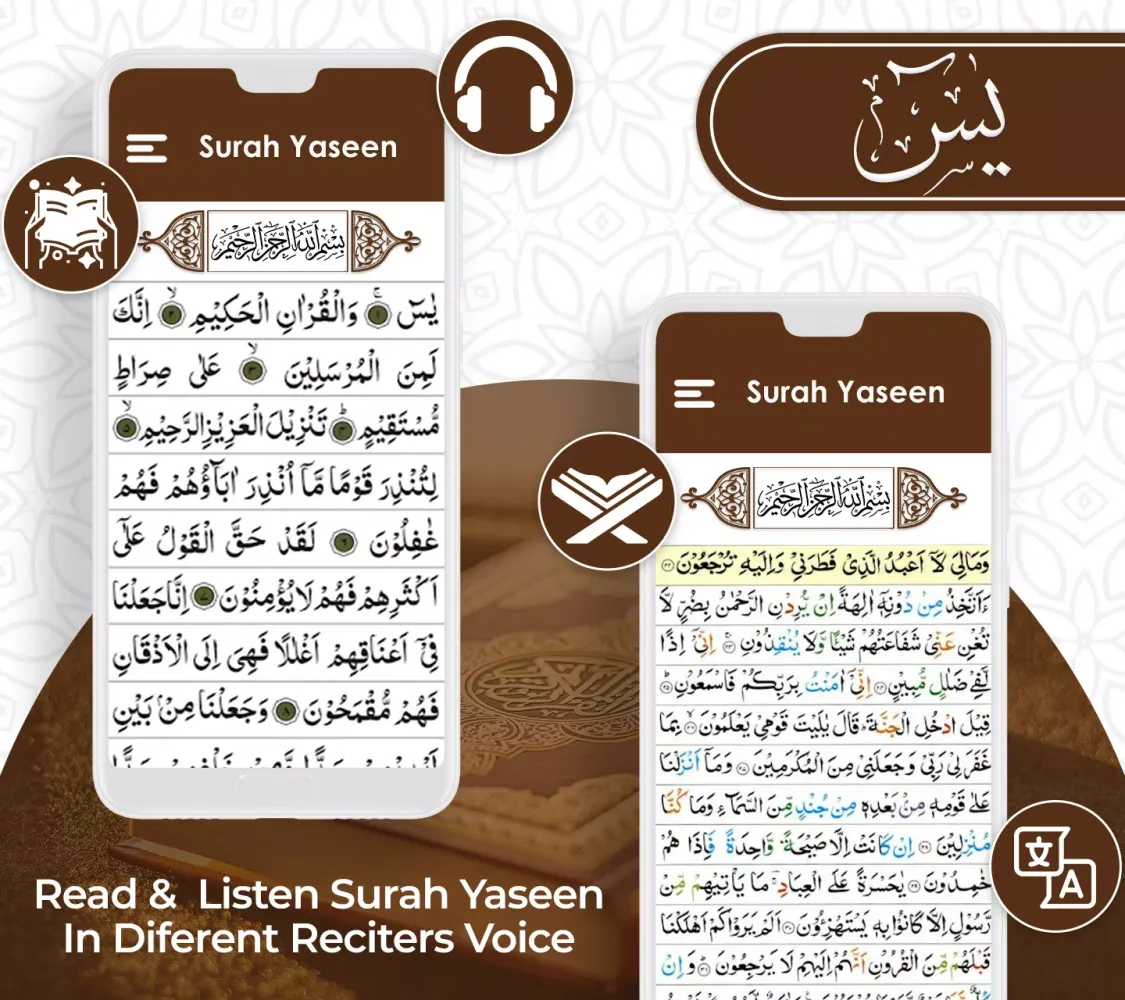 Surah Yaseen
بِسْمِ اللّٰهِ الرَّحْمٰنِ الرَّحِيْمِ
يٰسٓ ۚ﴿۱﴾ وَالْقُرْاٰنِ الْحَكِيْمِ ۙ﴿۲﴾ اِنَّكَ
لَمِنَ الْمُرْسَلِيْنَ ۙ﴿۳﴾ عَلٰى صِرَاطٍ
مُّسْتَقِيْمٍ ؕ﴿۴﴾ تَنْزِيْلَ الْعَزِيْزِ الرَّحِيْمِ ۙ﴿۵﴾
لِتُنْذِرَ قَوْمًا مَّاۤ اُنْذِرَ اٰبَآؤُهُمْ فَهُمْ
غٰفِلُوْنَ ﴿۶﴾ لَقَدْ حَقَّ الْقَوْلُ عَلٰٓى
اَكْثَرِهِمْ فَهُمْ لَا يُؤْمِنُوْنَ ﴿۷﴾ اِنَّا جَعَلْنَا
فِيْۤ اَعْنَاقِهِمْ اَغْلٰلًا فَهِيَ اِلَى الْاَذْقَانِ
فَهُمْ مُّقْمَحُوْنَ ﴿۸﴾ وَجَعَلْنَا مِنْۢ بَيْنِ
يٰسٓ
Surah Yaseen
بِسْمِ اللّٰهِ الرَّحْمٰنِ الرَّحِيْمِ
وَمَالِيَ لَاۤ اَعْبُدُ الَّذِيْ فَطَرَنِيْ وَاِلَيْهِ تُرْجَعُوْنَ ﴿۲۲﴾
ءَاَتَّخِذُ مِنْ دُوْنِهٖۤ اٰلِهَةً اِنْ يُّرِدْنِ الرَّحْمٰنُ بِضُرٍّ لَّا
تُغْنِ عَنِّيْ شَفَاعَتُهُمْ شَيْـًٔا وَّلَا يُنْقِذُوْنِ ۚ﴿۲۳﴾ اِنِّيْۤ اِذًا
لَّفِيْ ضَلٰلٍ مُّبِيْنٍ ﴿۲۴﴾ اِنِّيْۤ اٰمَنْتُ بِرَبِّكُمْ فَاسْمَعُوْنِ ؕ﴿۲۵﴾
قِيْلَ ادْخُلِ الْجَنَّةَ ؕ قَالَ يٰلَيْتَ قَوْمِيْ يَعْلَمُوْنَ ۙ﴿۲۶﴾ بِمَا
غَفَرَ لِيْ رَبِّيْ وَجَعَلَنِيْ مِنَ الْمُكْرَمِيْنَ ﴿۲۷﴾ وَمَاۤ اَنْزَلْنَا
عَلٰى قَوْمِهٖ مِنْۢ بَعْدِهٖ مِنْ جُنْدٍ مِّنَ السَّمَآءِ وَمَا كُنَّا
مُنْزِلِيْنَ ﴿۲۸﴾ اِنْ كَانَتْ اِلَّا صَيْحَةً وَّاحِدَةً فَاِذَا هُمْ
خٰمِدُوْنَ ﴿۲۹﴾ يٰحَسْرَةً عَلَى الْعِبَادِ ۚ مَا يَاْتِيْهِمْ مِّنْ
رَّسُوْلٍ اِلَّا كَانُوْا بِهٖ يَسْتَهْزِءُوْنَ ﴿۳۰﴾ اَلَمْ يَرَوْا كَمْ اَهْلَكْنَا
قَبْلَهُمْ مِّنَ الْقُرُوْنِ اَنَّهُمْ اِلَيْهِمْ لَا يَرْجِعُوْنَ ؕ﴿۳۱﴾ وَاِنْ
文
A
Read & Listen Surah Yaseen
In Diferent Reciters Voice